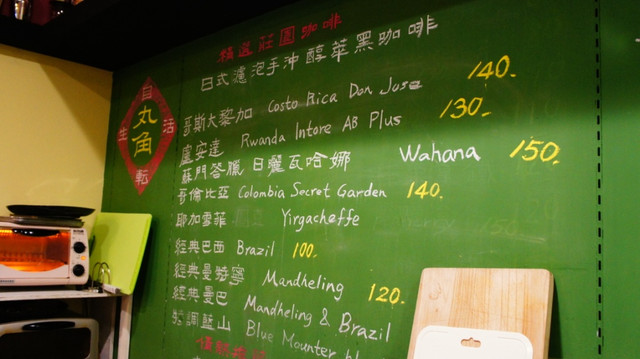 精選莊園咖啡
日式濾泡手沖醇萃黑咖啡
自
丸角
生 活
転
哥斯大黎加 Costo Rica Don Jose 140.
盧安達 Rwanda Intore AB Plus 130.
蘇門答臘 日曬瓦哈娜 Wahana 150.
哥倫比亞 Colombia Secret Garden 140.
耶加雪菲 Yirgacheffe
經典巴西 Brazil 100.
經典曼特寧 Mandheling
經典曼巴 Mandheling & Brazil 120.
藍山 Blue Mounter